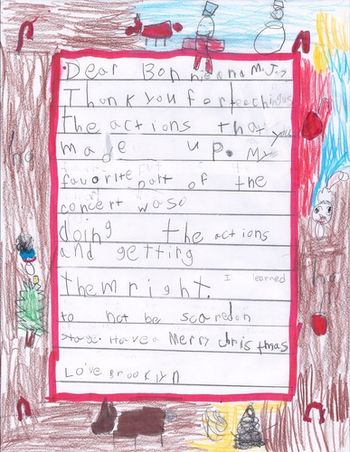 Dear Bonnie and Mr. J
Thank you for teaching us
the actions that you
made up. My
favorite part of the
concert was
doing the actions
and getting
them right. I learned
to not be scared on
stage. Have a Merry Christmas
Love Brooklyn